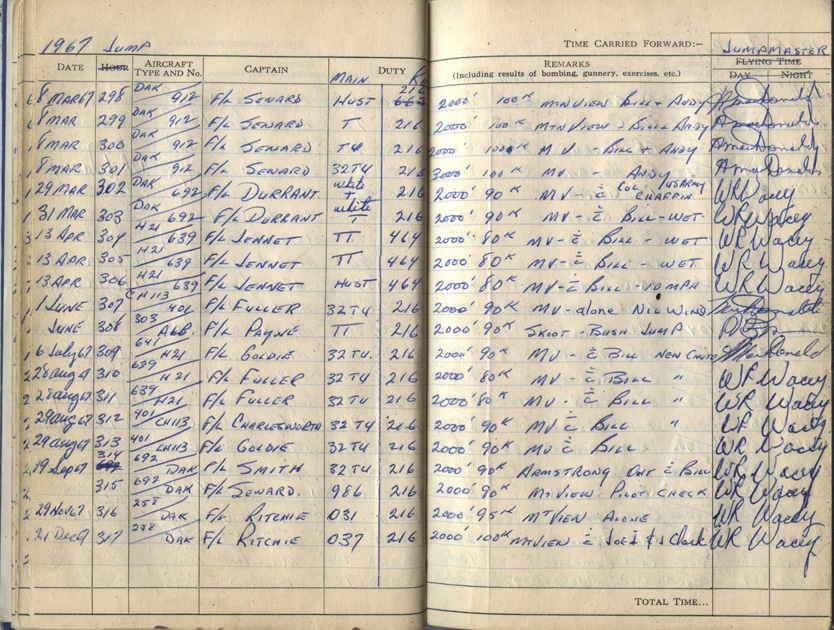 1967 JUMP TIME CARRIED FORWARD:— JUMPMASTER
DATE HOUR AIRCRAFT TYPE AND No. CAPTAIN MAIN DUTY REMARKS (Including results of bombing, gunnery, exercises, etc.) FLYING TIME DAY NIGHT
8 MAR 67 298 DAK 912 F/L SEWARD HUST 216 2000' 100K MTNVIEW BILL + ANDY
8 MAR 299 DAK 912 F/L SEWARD T 216 2000' 100K MTNVIEW BILL + ANDY
8 MAR 300 DAK 912 F/L SEWARD T4 216 2000' 100K M.V. - BILL + ANDY
8 MAR 301 DAK 912 F/L SEWARD 32T4 216 3000' 100K MV - ANDY
29 MAR 302 DAK 692 F/L DURRANT white T 216 2000' 90K MV - c̄ COL USARMY CHAPPIN WR Wacey
31 MAR 303 DAK 692 F/L DURRANT white T 216 2000' 90K MV - c̄ BILL - WET WR Wacey
13 APR 304 H21 639 F/L JENNET TT 464 2000' 80K MV - c̄ BILL - WET WR Wacey
13 APR 305 H21 639 F/L JENNET TT 464 2000' 80K MV - c̄ BILL - WET WR Wacey
13 APR 306 H21 639 F/L JENNET HUST 464 2000' 80K MV - c̄ BILL - 40 MPH WR Wacey
1 JUNE 307 CH113 401 F/L FULLER 32T4 216 2000' 90K MV - alone NIL WIND
JUNE 308 303 ALB. F/L PAYNE TT 216 2000' 90K SKOOT - BUSH JUMP
6 July 67 309 641 H21 F/L GOLDIE 32 T4. 216 2000' 90K MV - c̄ BILL NEW CHUTE
28 aug 67 310 639 H21 F/L FULLER 32 T4 216 2000' 80K MV - c̄ BILL " WR Wacey
28 aug 67 311 639 H21 F/L FULLER 32T4 216 2000' 80K MV - c̄ BILL " WR Wacey
29 aug 67 312 401 CH113 F/L CHARLESWORTH 32 T4 216 2000' 90K MV c̄ BILL " WR Wacey
29 aug 67 313 401 CH113 F/L GOLDIE 32T4 216 2000' 90K MV c̄ BILL WR Wacey
19 Sep 67 314 692 DAK F/L SMITH 32T4 216 2000' 90K ARMSTRONG ONT c̄ BILL WR Wacey
315 692 DAK F/L SEWARD. 986 216 2000' 90K MT VIEW PILOT CHECK WR Wacey
29 Nov 67 316 258 DAK F/L RITCHIE 031 216 2000' 95K MT VIEW ALONE WR Wacey
21 Dec 317 258 DAK F/L RITCHIE 037 216 2000' 100K MTVIEW c̄ Clark WR Wacey
TOTAL TIME...